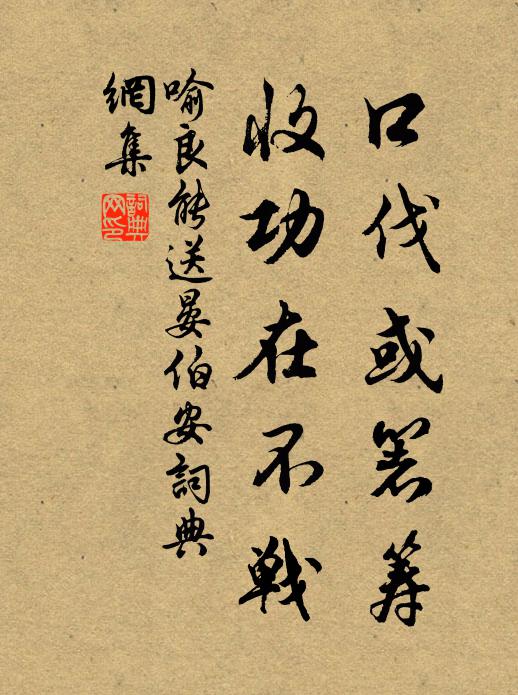 口伐或箸筹
收功在不戦
喻良能送晏伯安詞典
網集
詞典
网印